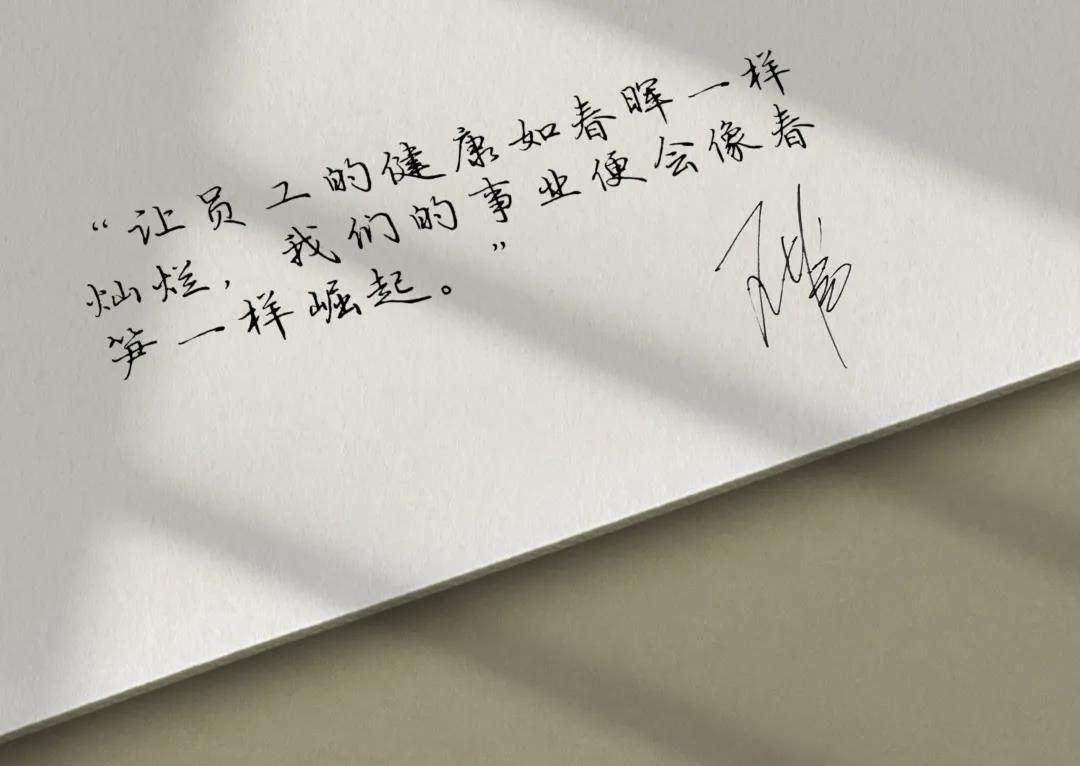 “让员工的健康如春晖一样
灿烂，我们的事业便会像春
笋一样崛起。”